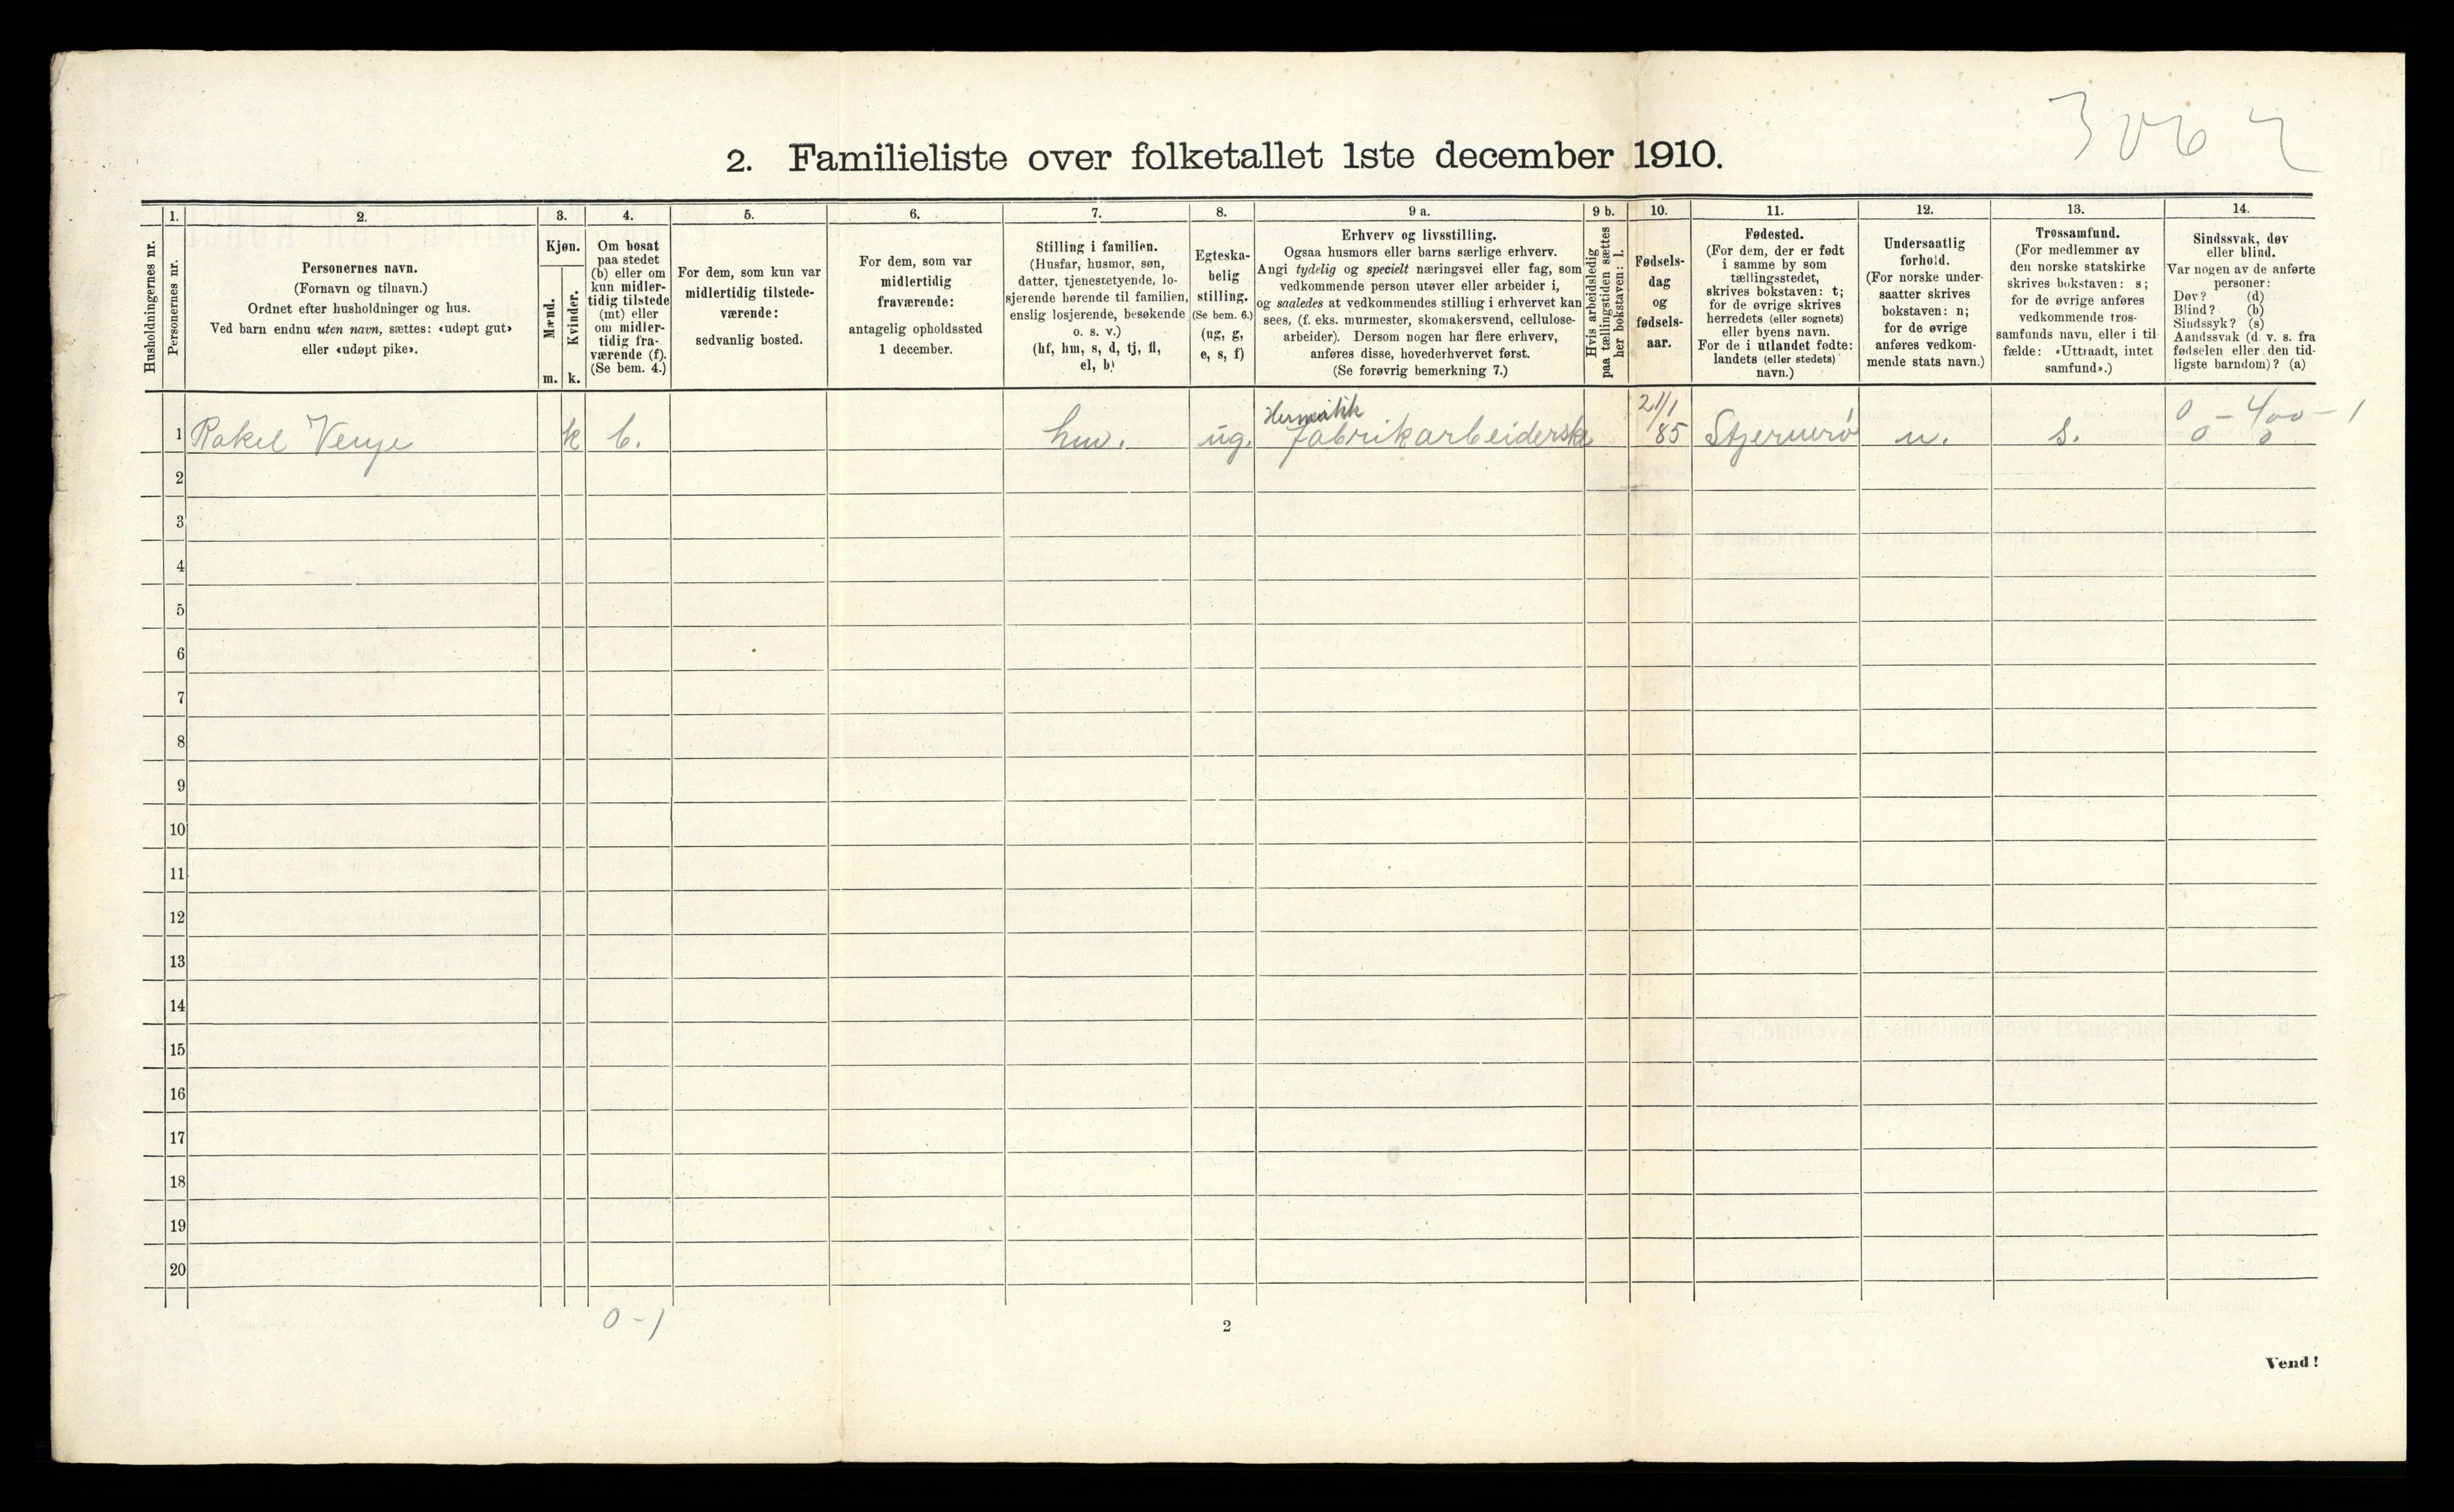 3062
2. Familieliste over folketallet 1ste december 1910.
Husholdningernes nr.
1.
Personernes nr.
2.
Personernes navn.
(Fornavn og tilnavn.)
Ordnet efter husholdninger og hus.
Ved barn endnu uten navn, sættes: «udøpt gut»
eller «udøpt pike».
3.
Kjøn.
Mænd.
Kvinder.
m. k.
4.
Om bosat
paa stedet
(b) eller om
kun midler-
tidig tilstede
(mt) eller
om midler-
tidig fra-
værende (f).
(Se bem. 4.)
5.
For dem, som kun var
midlertidig tilstede-
værende:
sedvanlig bosted.
6.
For dem, som var
midlertidig
fraværende:
antagelig opholdssted
1 december.
7.
Stilling i familien.
(Husfar, husmor, søn,
datter, tjenestetyende, lo-
sjerende hørende til familien,
enslig losjerende, besøkende
o. s. v.)
(hf, hm, s, d, tj, fl,
el, b)
8.
Egteska-
belig
stilling.
(Se bem. 6.)
(ug, g,
e, s, f)
9 a.
Erhverv og livsstilling.
Ogsaa husmors eller barns særlige erhverv.
Angi tydelig og specielt næringsvei eller fag, som
vedkommende person utøver eller arbeider i,
og saaledes at vedkommendes stilling i erhvervet kan
sees, (f. eks. murmester, skomakersvend, cellulose-
arbeider). Dersom nogen har flere erhverv,
anføres disse, hovederhvervet først.
(Se forøvrig bemerkning 7.)
9 b.
Hvis arbeidsledig
paa tællingstiden sættes
her bokstaven: l.
10.
Fødsels-
dag
og
fødsels-
aar.
11.
Fødested.
(For dem, der er født
i samme by som
tællingsstedet,
skrives bokstaven: t;
for de øvrige skrives
herredets (eller sognets)
eller byens navn.
For de i utlandet fødte:
landets (eller stedets)
navn.)
12.
Undersaatlig
forhold.
(For norske under-
saatter skrives
bokstaven: n;
for de øvrige
anføres vedkom-
mende stats navn.)
13.
Trossamfund.
(For medlemmer av
den norske statskirke
skrives bokstaven: s;
for de øvrige anføres
vedkommende tros-
samfunds navn, eller i til
fælde: «Uttraadt, intet
samfund».)
14.
Sindssvak, døv
eller blind.
Var nogen av de anførte
personer:
Døv? (d)
Blind? (b)
Sindssyk? (s)
Aandssvak (d. v. s. fra
fødselen eller den tid-
ligste barndom)? (a)
Hermetik 21/1 0 - 400 - 1
1 Rakel Venje k b. hm. ug. fabrikarbeiderske 85 Stjernerö n. s. 0 0
2
3
4
5
6
7
8
9
10
11
12
13
14
15
16
17
18
19
20
0-1
2
Vend!